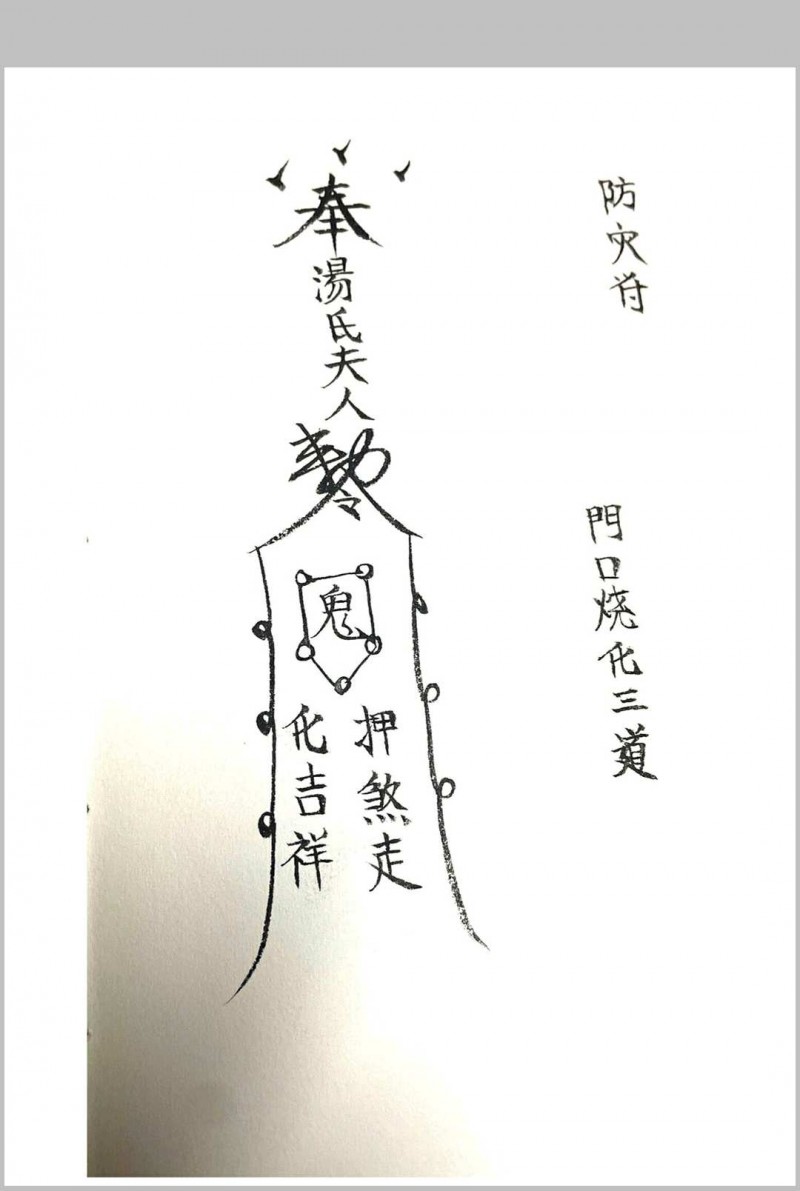 防灾符
門口烧化三道
奉
湯氏夫人
勅令
鬼
押煞走
化吉祥